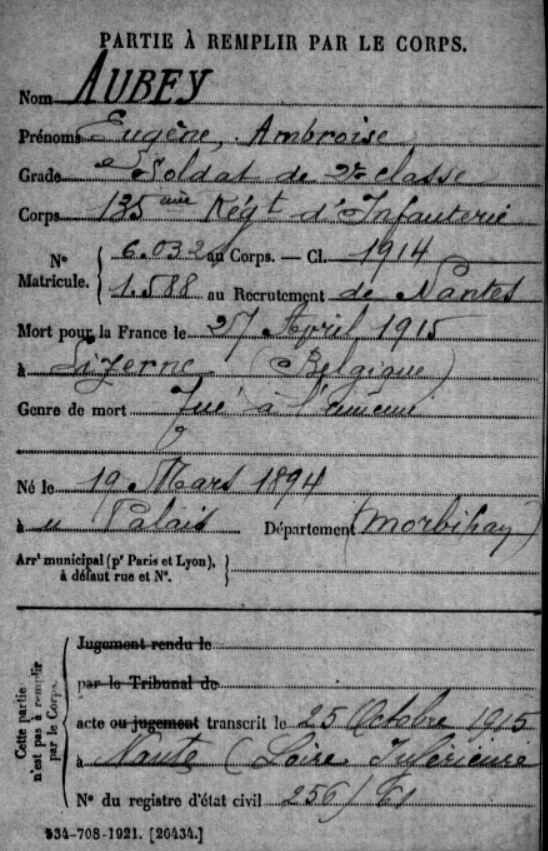 PARTIE À REMPLIR PAR LE CORPS.
Nom AUBEY
Prénoms Eugène, Ambroise
Grade Soldat de 2e classe
Corps 135 eme Régt d'Infanterie
N° Matricule. { 6.032 au Corps. — Cl. 1914
1.588 au Recrutement de Nantes
Mort pour la France le 27 April 1915
à Lizerne (Belgique)
Genre de mort Tué à l'ennemi
Né le 19 Mars 1894
à Palais Département (Morbihan)
Arrt municipal (pr Paris et Lyon), à défaut rue et N°. }
Cette partie n'est pas à remplir par le Corps.
Jugement rendu le
par le Tribunal de
acte ou jugement transcrit le 25 Octobre 1915
à Nantes (Loire Inférieure
N° du registre d'état civil 256/61
534-708-1921. [26434.]